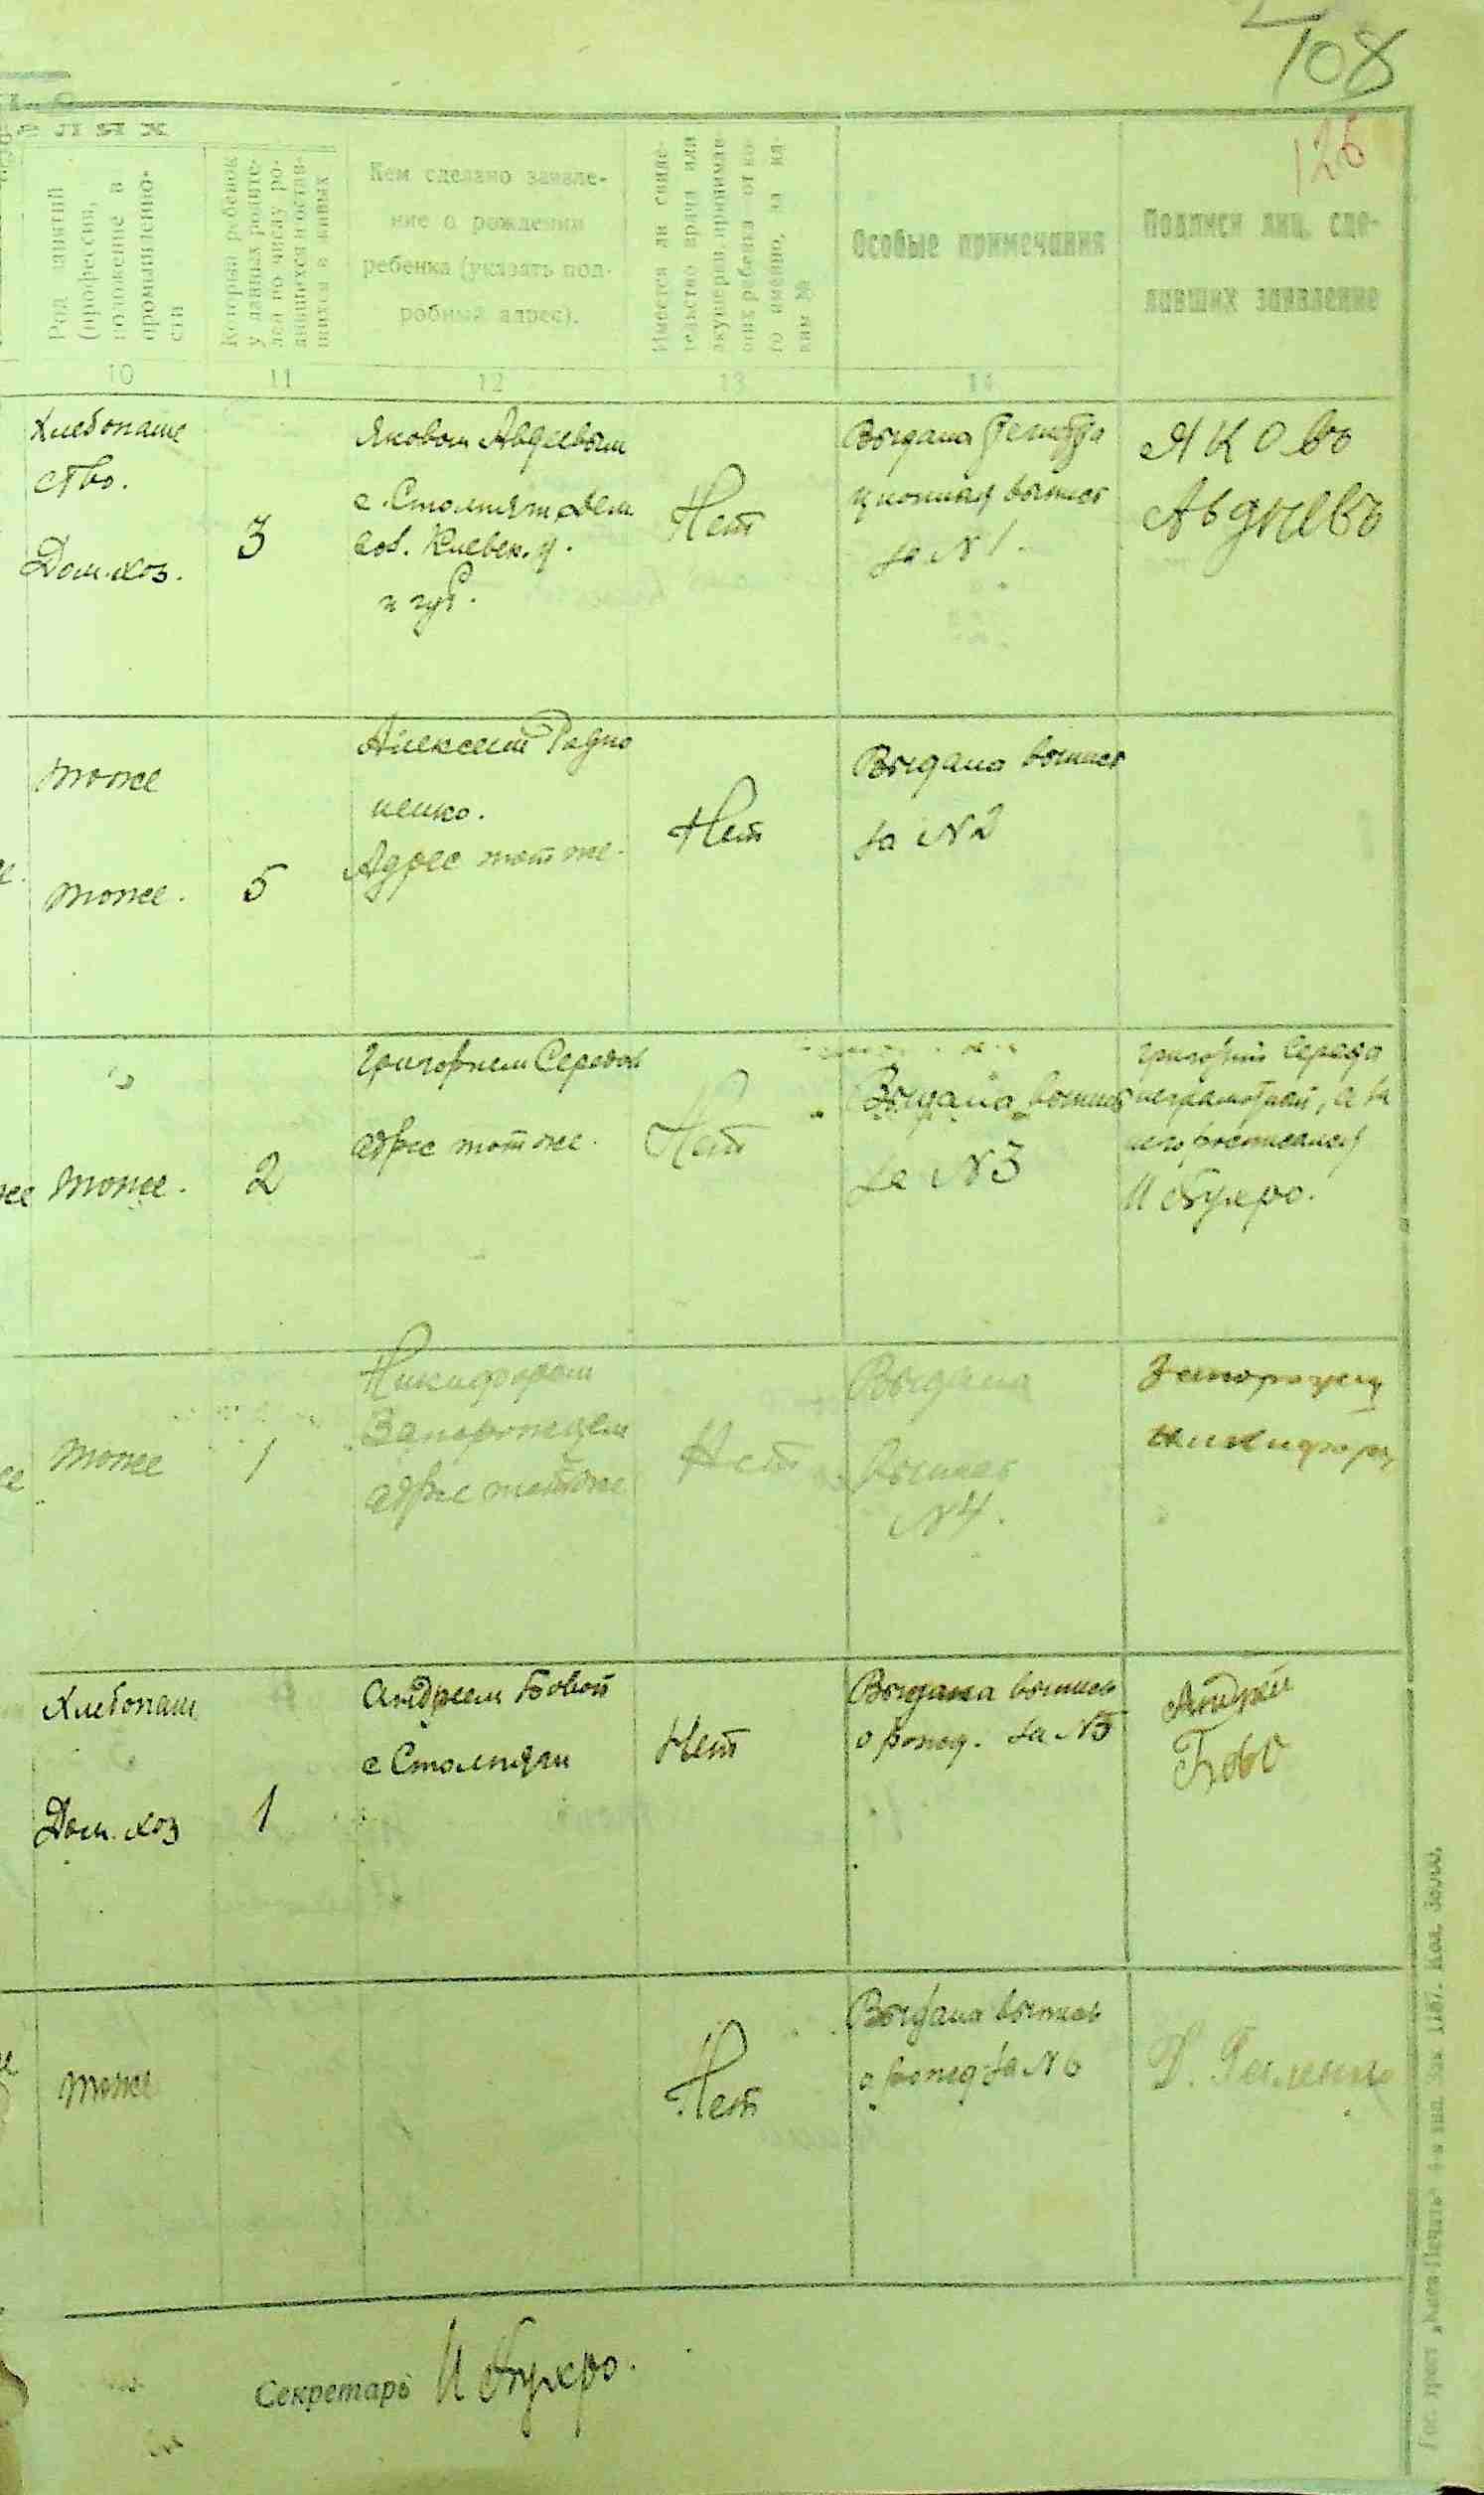 108
126
Род занятий
(профессия,
положение в
промышленно-
сти
Который ребенок
у данных родите-
лей по числу ро-
дившихся и остав-
шихся в живых
Кем сделано заявле-
ние о рождении
ребенка (указать под-
робный адрес).
Имеется ли свиде-
тельство врача или
акушерки, принимав
ших ребенка от ко-
го именно, за ка-
ким №
Особые примечания
Подписи лиц, сде-
лавших заявление
10
11
12
13
14
Хлебопаше
ство.
Дом. хоз.
3
Яковом Авдеевым
с. Столпяги Дем.
вол. Киевск. у.
и губ.
Нет
Выдана
выпись
за N 1.
Яковъ
Авдѣевъ
тоже
тоже.
5
Алексеем Радио
ненко.
Адрес тот же.
Нет
Выдана выпись
за N 2
тоже.
2
Григорием Середой
адрес тот же.
Нет
Выдана выпись
за N 3
Григорий Середа
неграмотный, а за
него расписался
И Бухро.
тоже
1
Никифором
Запорожцем
адрес тот же
Нет
Выдана
выпись
N 4.
Запорожец
Никифор
Хлебопаш
Дом. хоз
1
Андреем Бовой
с Столпяги
Нет
Выдана выпись
о рожд. за N 5
Андрей
Бово
тоже
Нет
Выдана выпись
о рожд за N 6
Секретарь И Бухро.